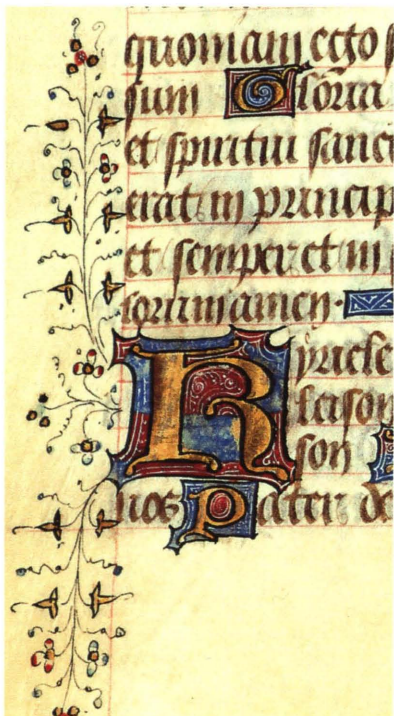 quoniam ego s
sum Gloria
et spiritui sanct
erat in princip
et semper et in
lorum amen.
Kyriele
leison
son
nos Pater de